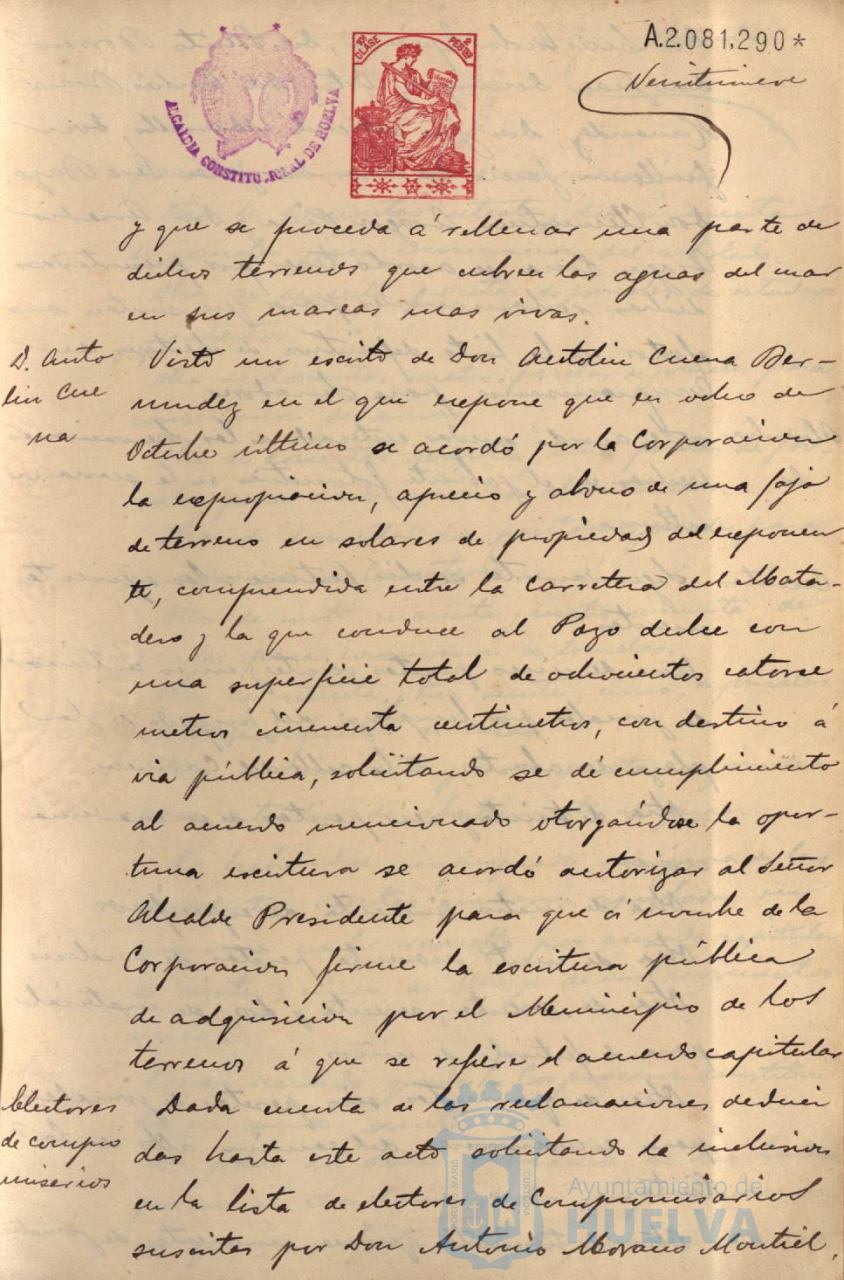 A.2.081,290*
Veintinueve
ALCALDIA CONSTITUCIONAL DE HUELVA
10ª CLASE
2 PESETAS
y que se proceda á rellenar una parte de
dichos terrenos que cubren las aguas del mar
en sus mareas mas vivas.
D. Anto
lin Cue
na
Visto un escrito de Don Antolin Cuena Ber-
mudez en el que expone que en ocho de
Octubre último se acordó por la Corporacion
la expropiacion, aprecio y abono de una faja
de terreno en solares de propiedad del exponen
te, comprendida entre la carretera del Mata-
dero y la que conduce al Pozo dulce con
una superficie total de ochocientos catorse
metros cincuenta centimetros, con destino á
via pública, solicitando se dé cumplimiento
al acuerdo mencionado otorgándose la opor-
tuna escritura se acordó autorizar al Señor
Alcalde Presidente para que á nombre de la
Corporacion firme la escritura pública
de adquisicion por el Municipio de los
terrenos á que se refiere el acuerdo capitular
Electores
de compro
misarios
Dada cuenta de las reclamaciones deduci
das hasta este acto solicitando la inclusion
en la lista de electores de Compromisarios
suscritas por Don Antonio Morano Montiel,
Ayuntamiento de
HUELVA